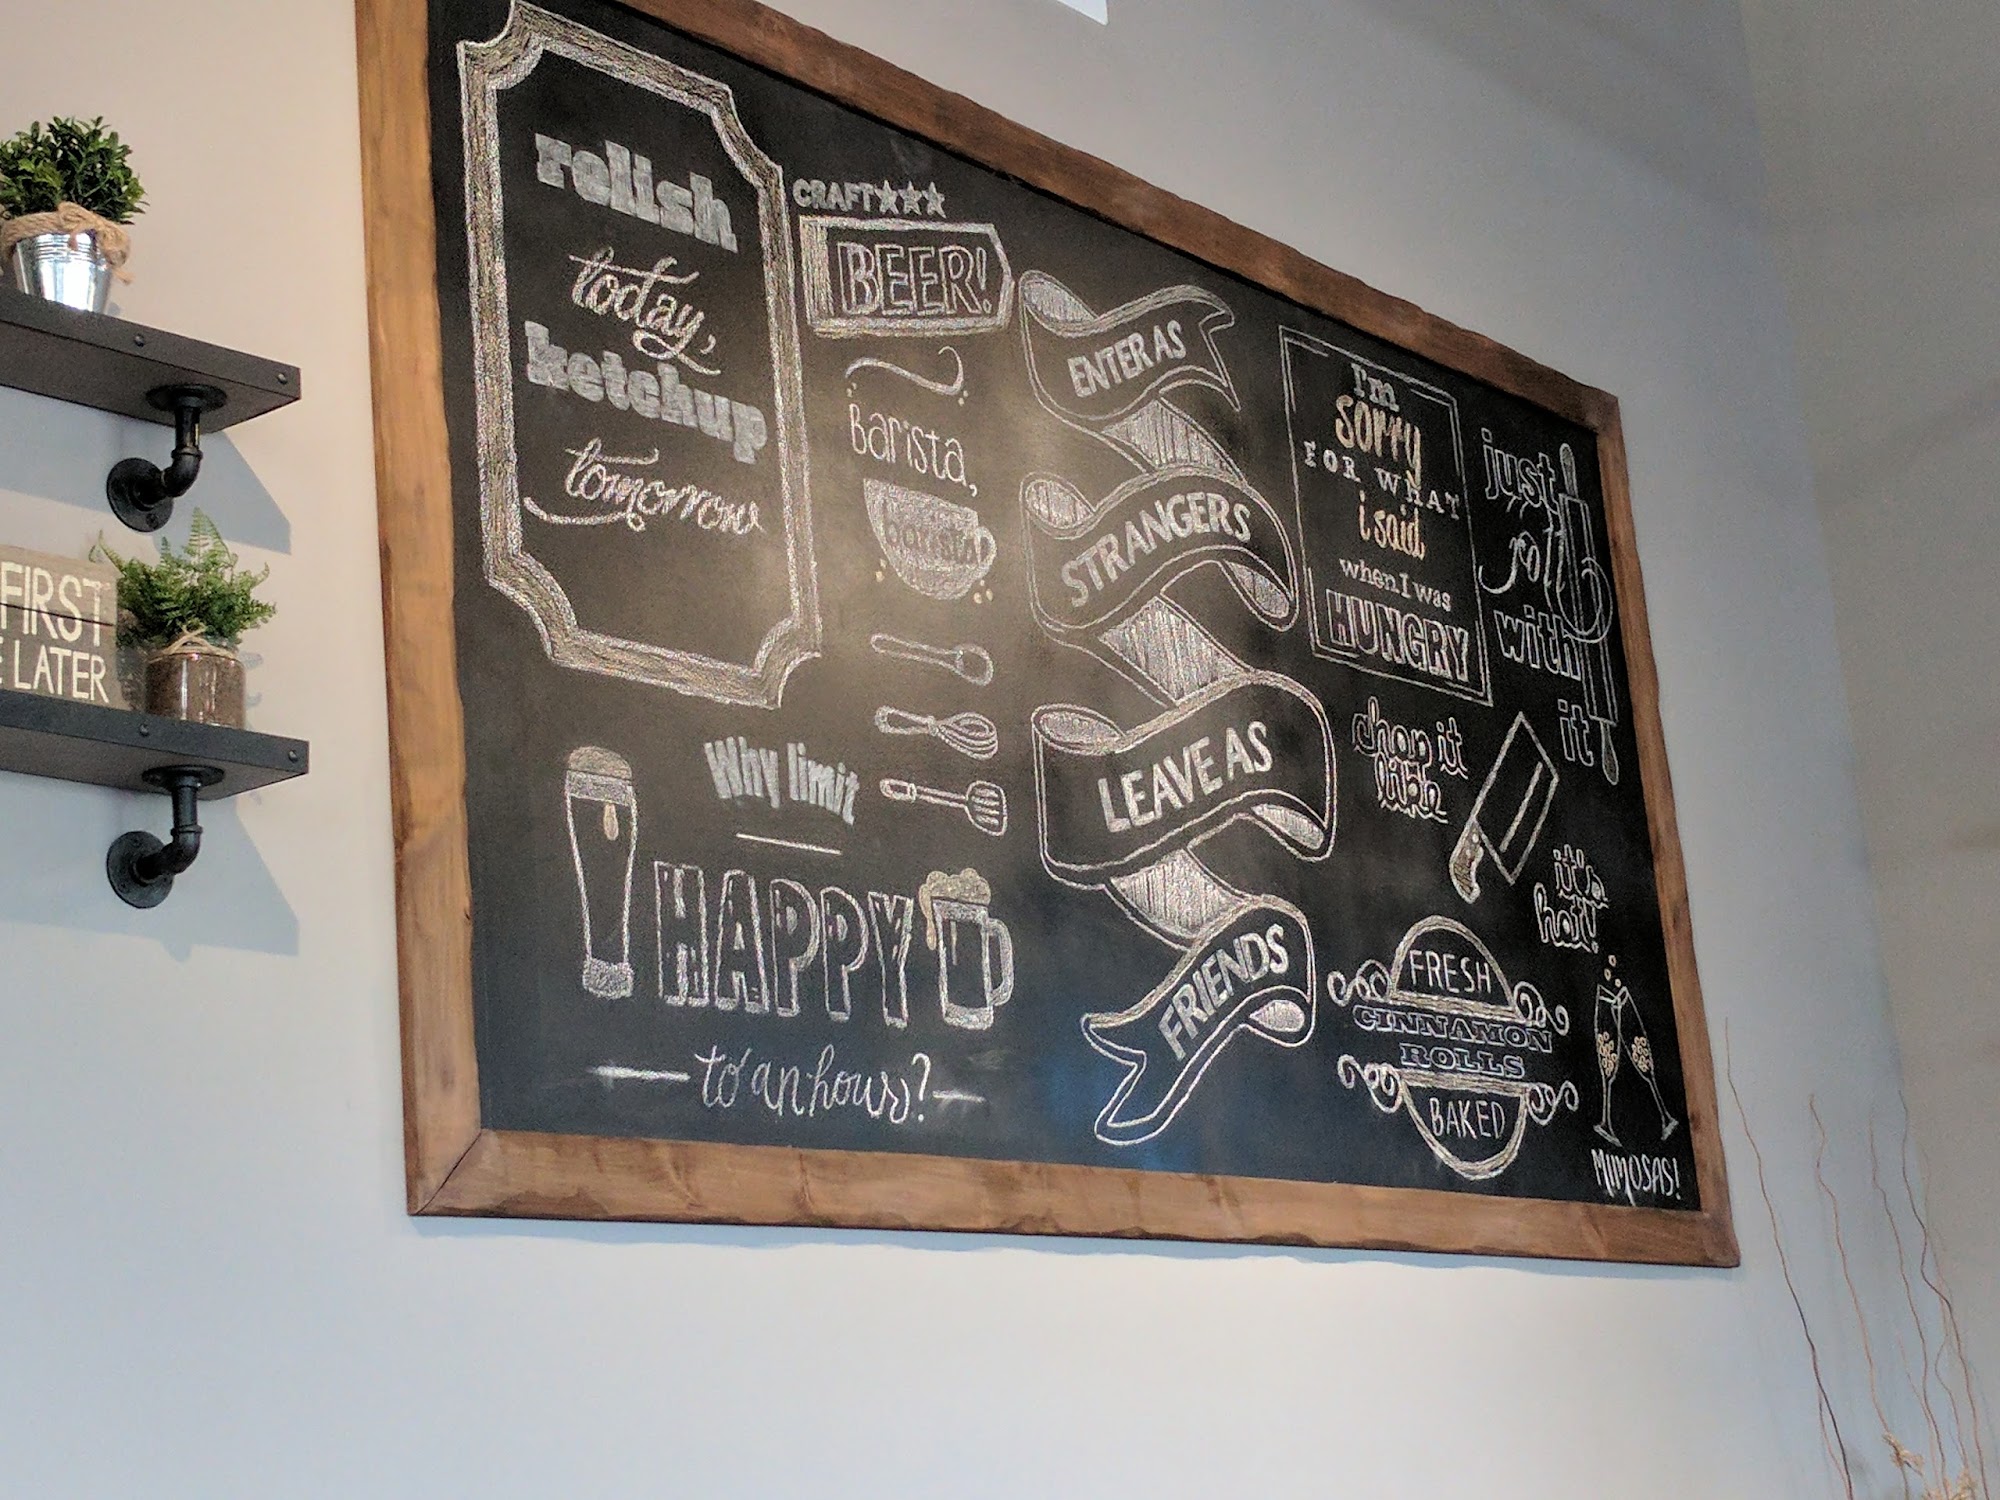 relish
today,
ketchup
tomorrow
CRAFT
BEER!
Barista,
Barista
Why limit
HAPPY
to an hour?
ENTER AS
STRANGERS
LEAVE AS
FRIENDS
I'm
sorry
FOR WHAT
i said
when I was
HUNGRY
just
roll
with
it
chop it
like
it's
hot!
FRESH
CINNAMON
ROLLS
BAKED
MIMOSAS!
FIRST
LATER